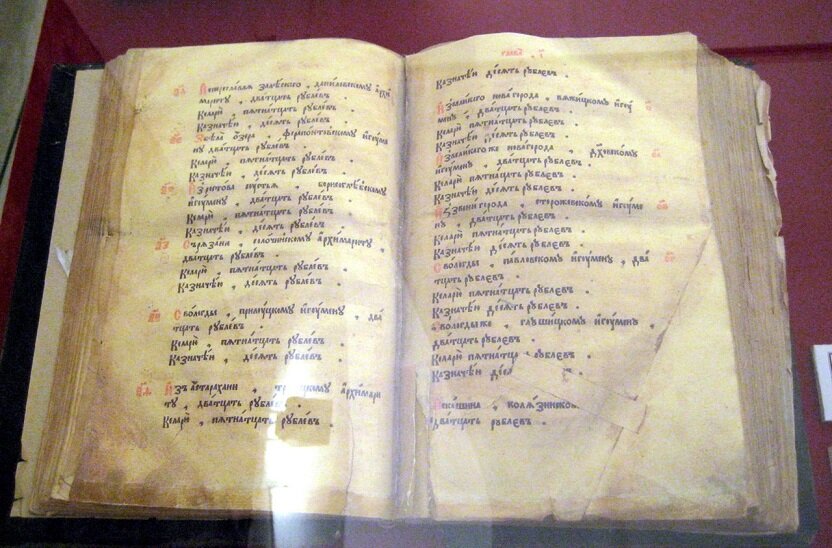 Переславля залѣского, даниловскому архи
мариту, дватцать рублевъ.
Келарю, пятнатцать рублевъ.
Казначѣю, десять рублевъ.
Збѣла озера, ферапонтовскому игуме
ну дватцать рублевъ.
Келарю, пятнатцать рублевъ.
Казначѣю, десять рублевъ.
устья, борисоглѣбскому
игумену, дватцать рублевъ.
Келарю, пятнатцать рублевъ.
Казначѣю, десять рублевъ.
Срязани, солотчинскому архимариту,
дватцать рублевъ.
Келарю, пятнатцать рублевъ.
Казначѣю, десять рублевъ.
Свологды, прилуцкому игумену, два
тцать рублевъ.
Келарю, пятнатцать рублевъ.
Казначѣю, десять рублевъ.
Изъ астарахани, троицкому архимари
ту, дватцать рублевъ.
Келарю, пятнатцать рублевъ.
глава
Казначѣю десять рублевъ.
Извеликого новагорода, вяжицкому игу
мену, дватцать рублевъ.
Келарю пятнатцать рублевъ.
Казначѣю десять рублевъ.
Извеликагоже новагорода, духовскому
игумену, дватцать рублевъ.
Келарю пятнатцать рублевъ.
Казначѣю десять рублевъ.
Иззвенигорода, сторожевскому игуме
ну, дватцать рублевъ.
Келарю пятнатцать рублевъ.
Казначѣю десять рублевъ.
Свологды, павловскому игумену, два
тцать рублевъ.
Келарю пятнатцать рублевъ.
Казначѣю десять рублевъ.
Свологдыже, глушицкому игумену,
дватцать рублевъ.
Келарю пятнатцать рублевъ.
Казначѣю деся
Искашина, колязинском
дватцать рублевъ.